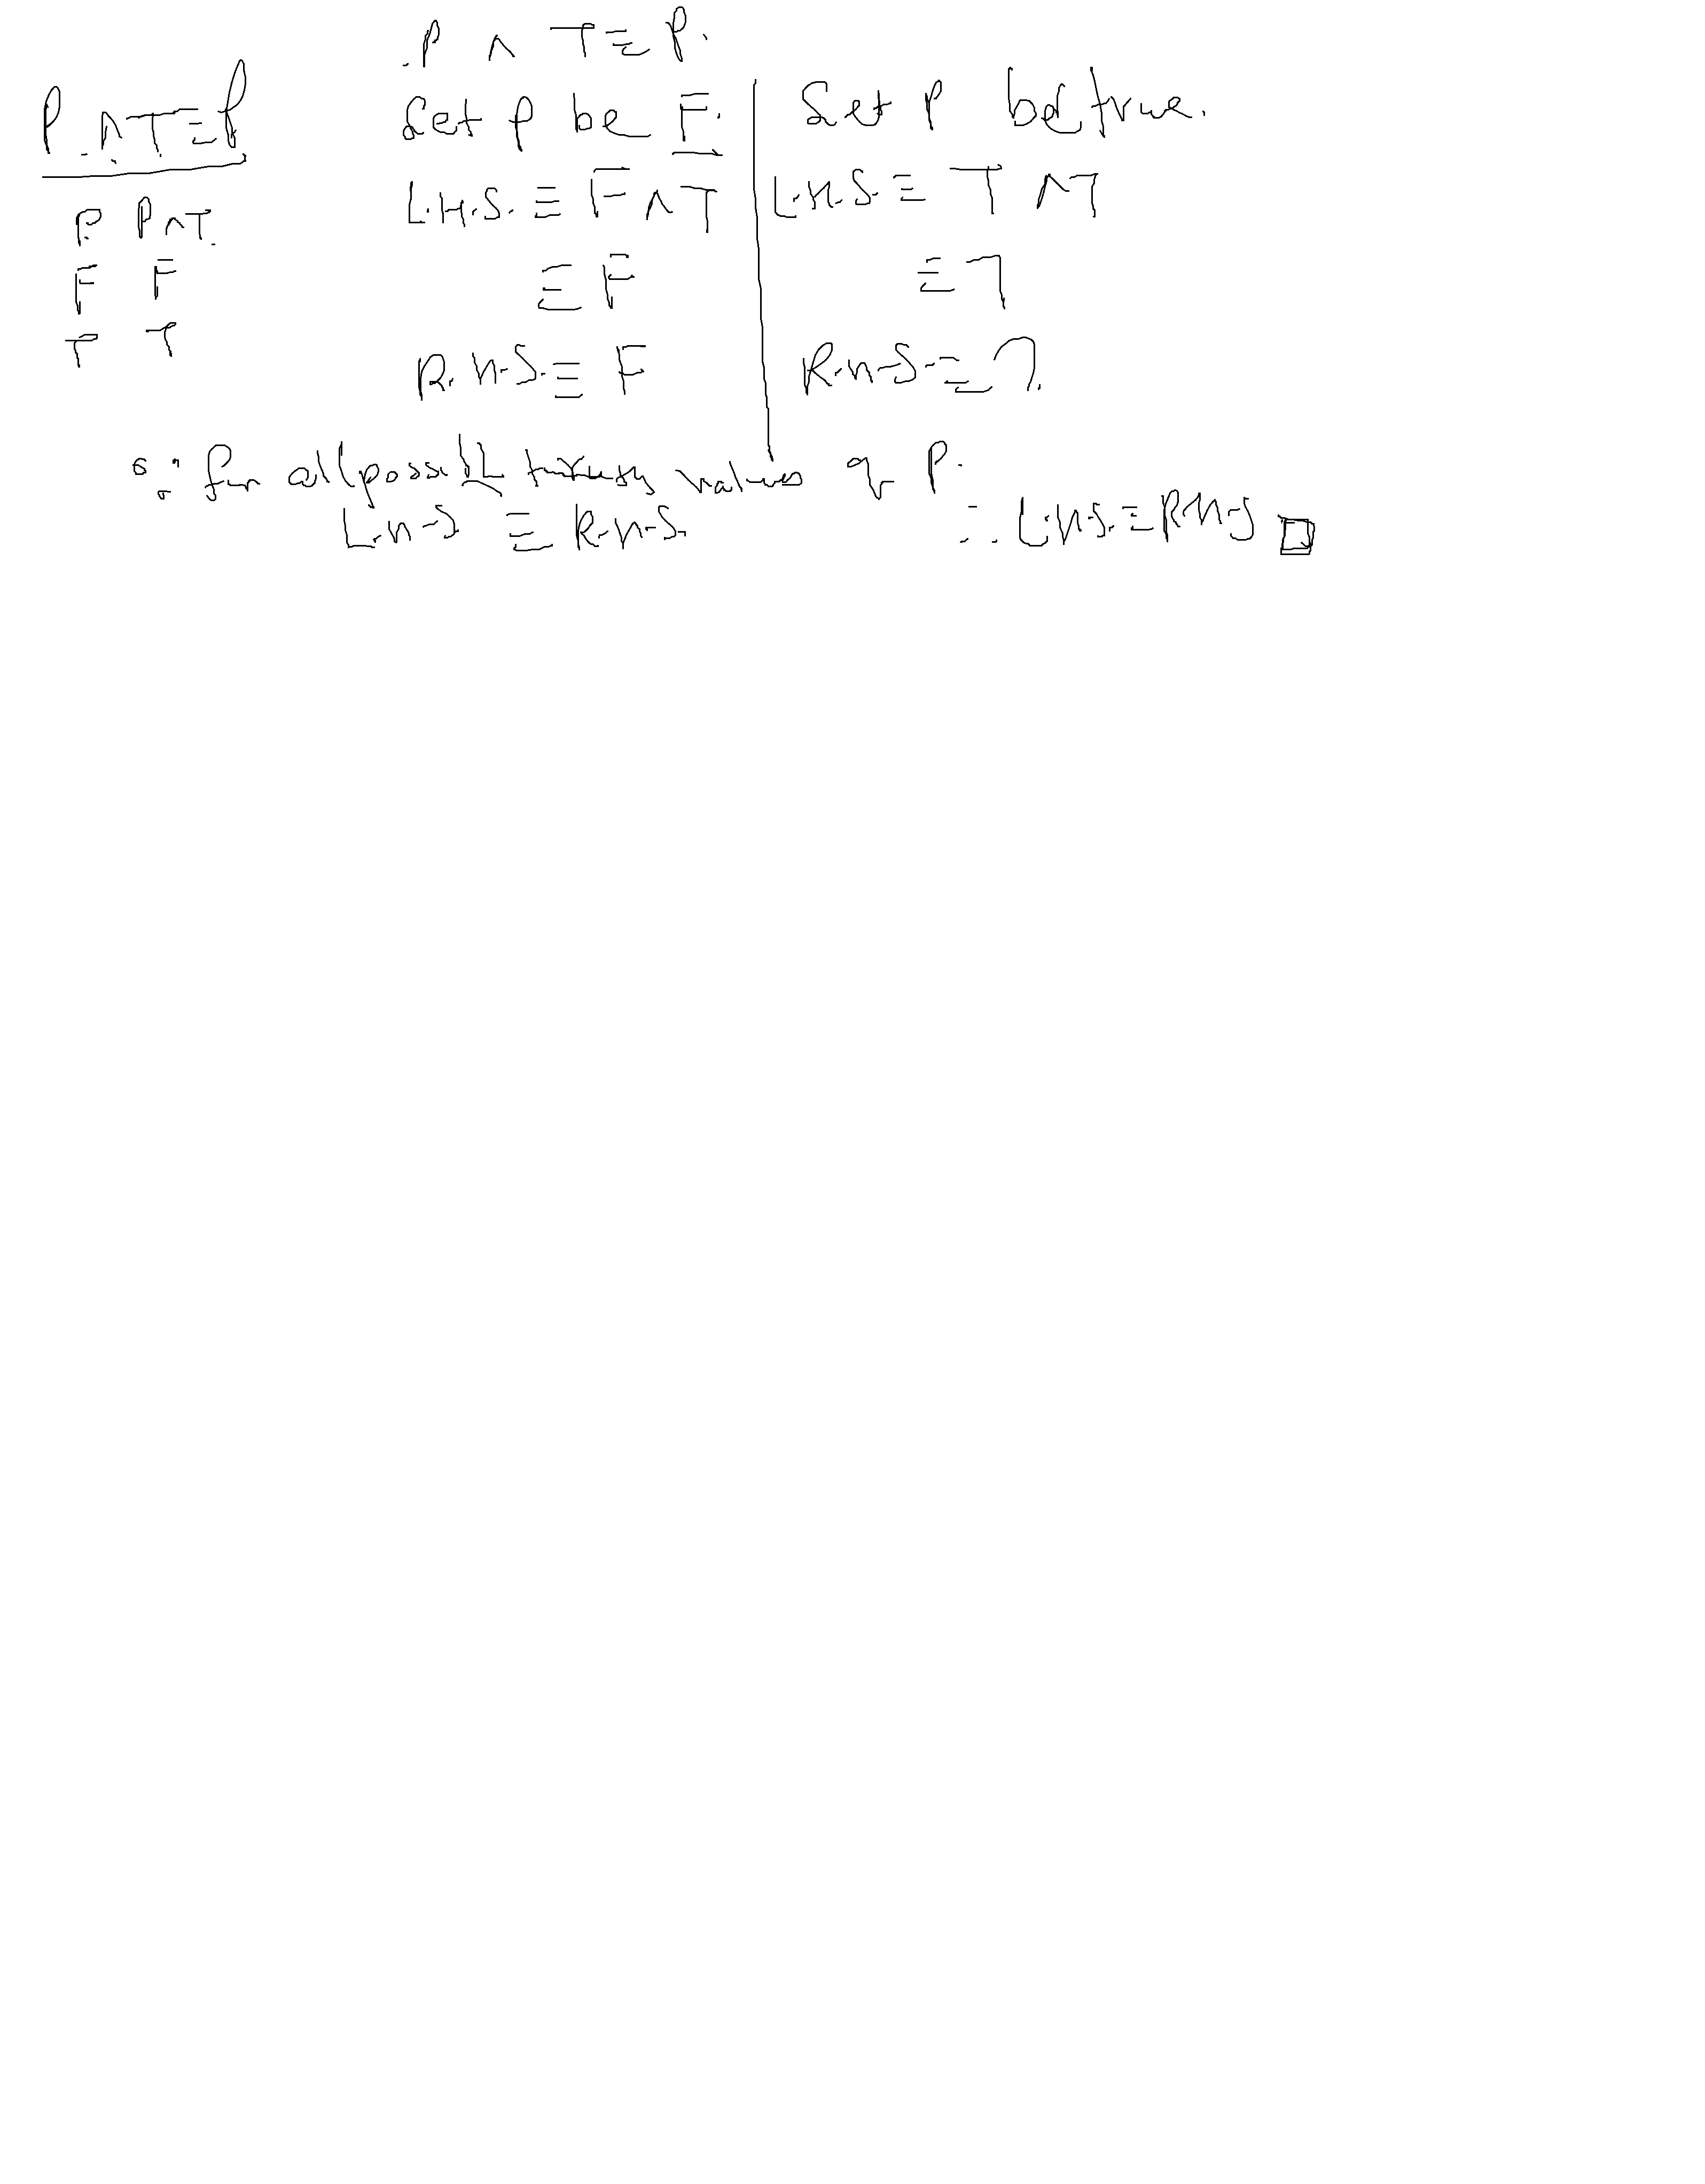 P ∧ T ≡ P.
P ∧ T ≡ P
P P ∧ T.
F F
T T
Let P be F.
L.H.S. ≡ F ∧ T
≡ F
R.H.S. ≡ F
Let P be true.
L.H.S. ≡ T ∧ T
≡ T
R.H.S. ≡ T.
∵ for all possible values of P.
L.H.S ≡ R.H.S.
∴ L.H.S. ≡ R.H.S □